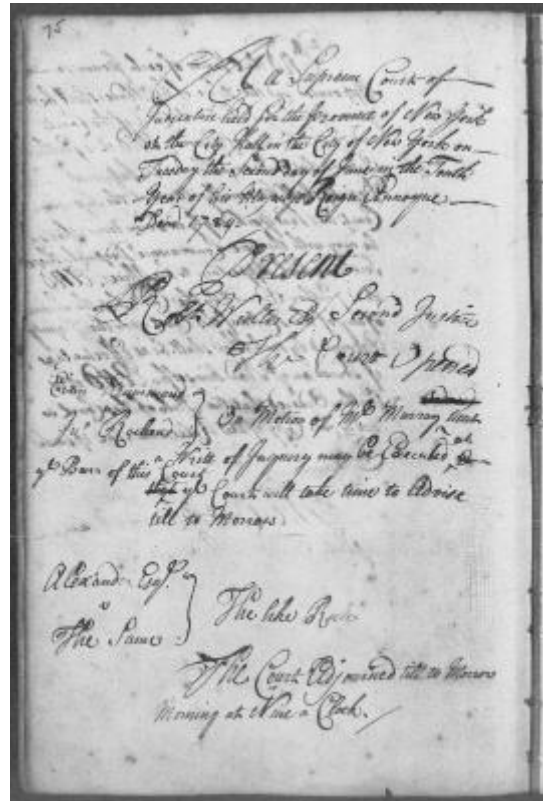 75
At a Supreme Court of
Judicature held for the Province of New York
at the City Hall in the City of New York on
Tuesday the Second day of June in the Tenth
Year of his Majestys Reign Annoque
Dom. 1724
Present
Robt. Walter Esq Second Justice
The Court Opened
On Motion of Mr. Murray that
a Writt of Inquiry may be Executed at
ye Barr of this Court
ye Court will take time to Advise
till to Morrow
Alexander Esqr.
v
The Same
The like Rule
The Court Adjourned till to Morrow
Morning at Nine a Clock.